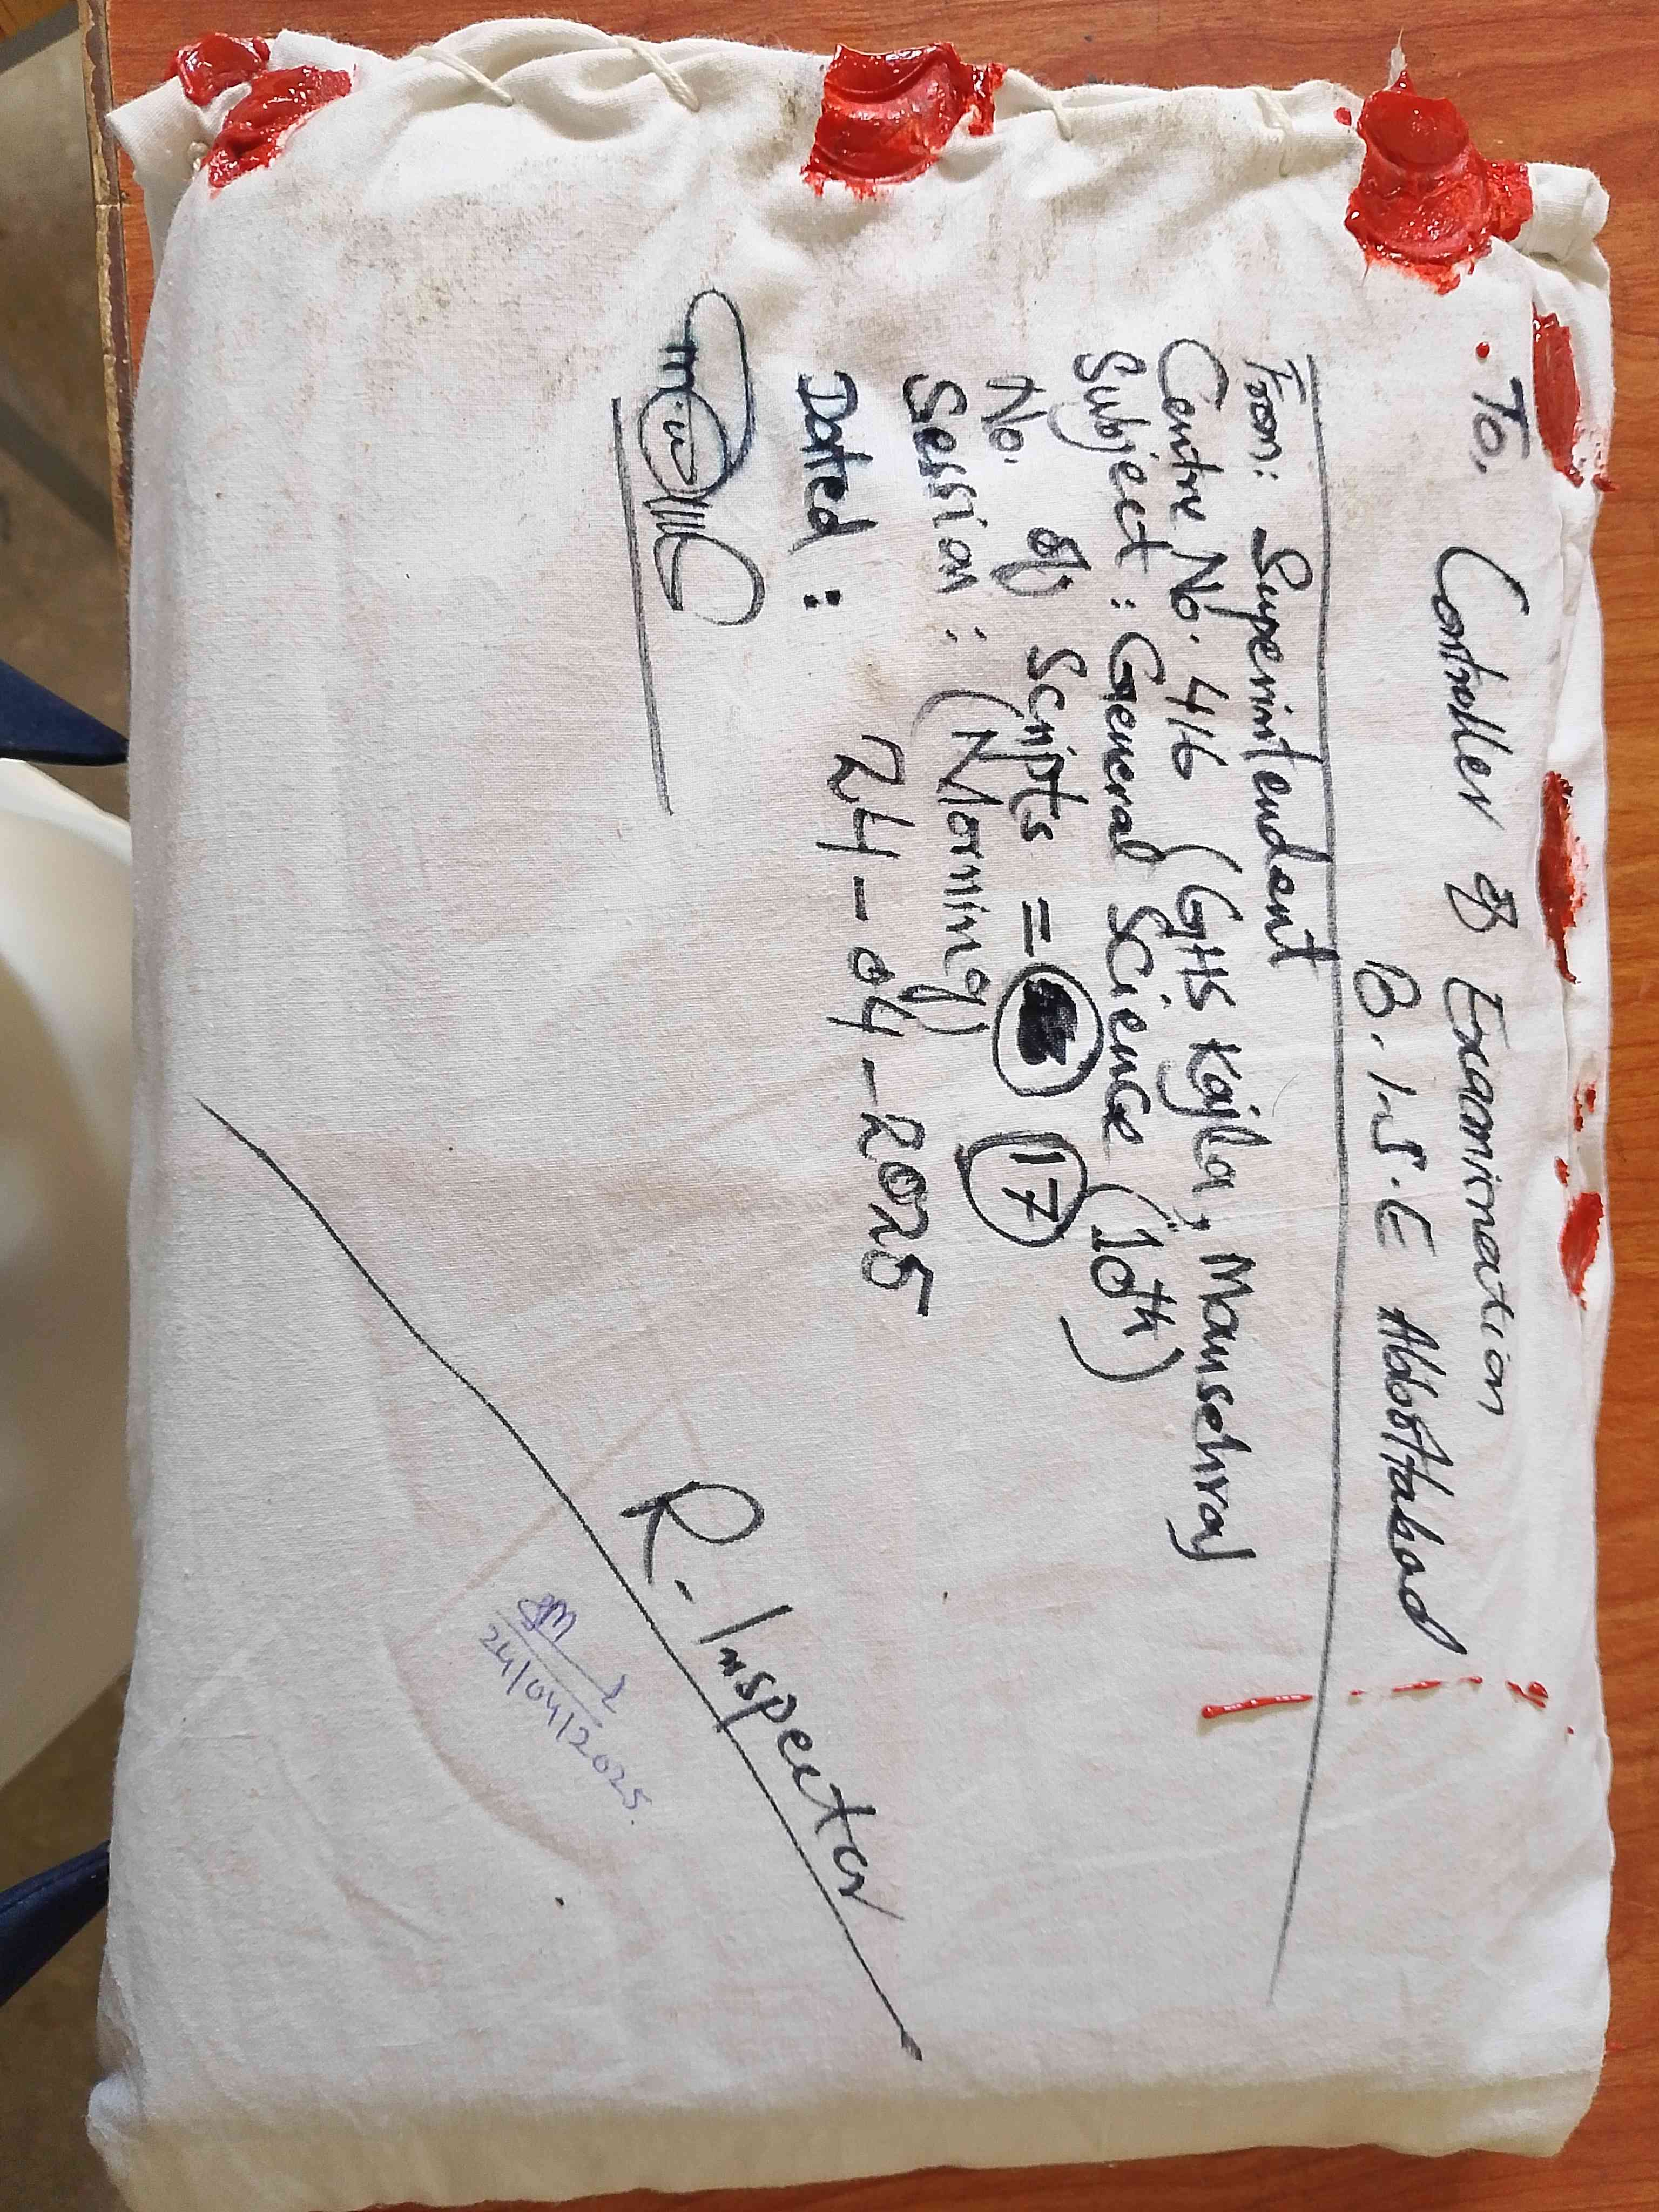 To,
Controller of Examination
B.I.S.E Abbottabad
From: Superintendent
Centre No. 416 (GHS Kajla, Mansehra)
Subject : General Science (10th)
No. of Scripts = 17
Session : (Morning)
Dated : 24-04-2025
R-Inspector
24/04/2025.